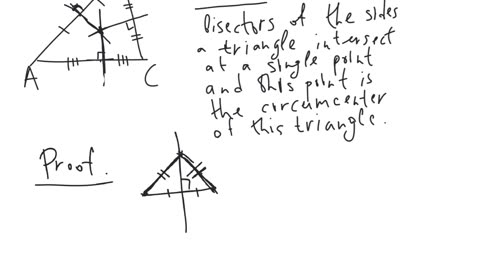 Bisectors of the sides
a triangle intersect
at a single point
and this point is
the circumcenter
of this triangle.
A
C
Proof.